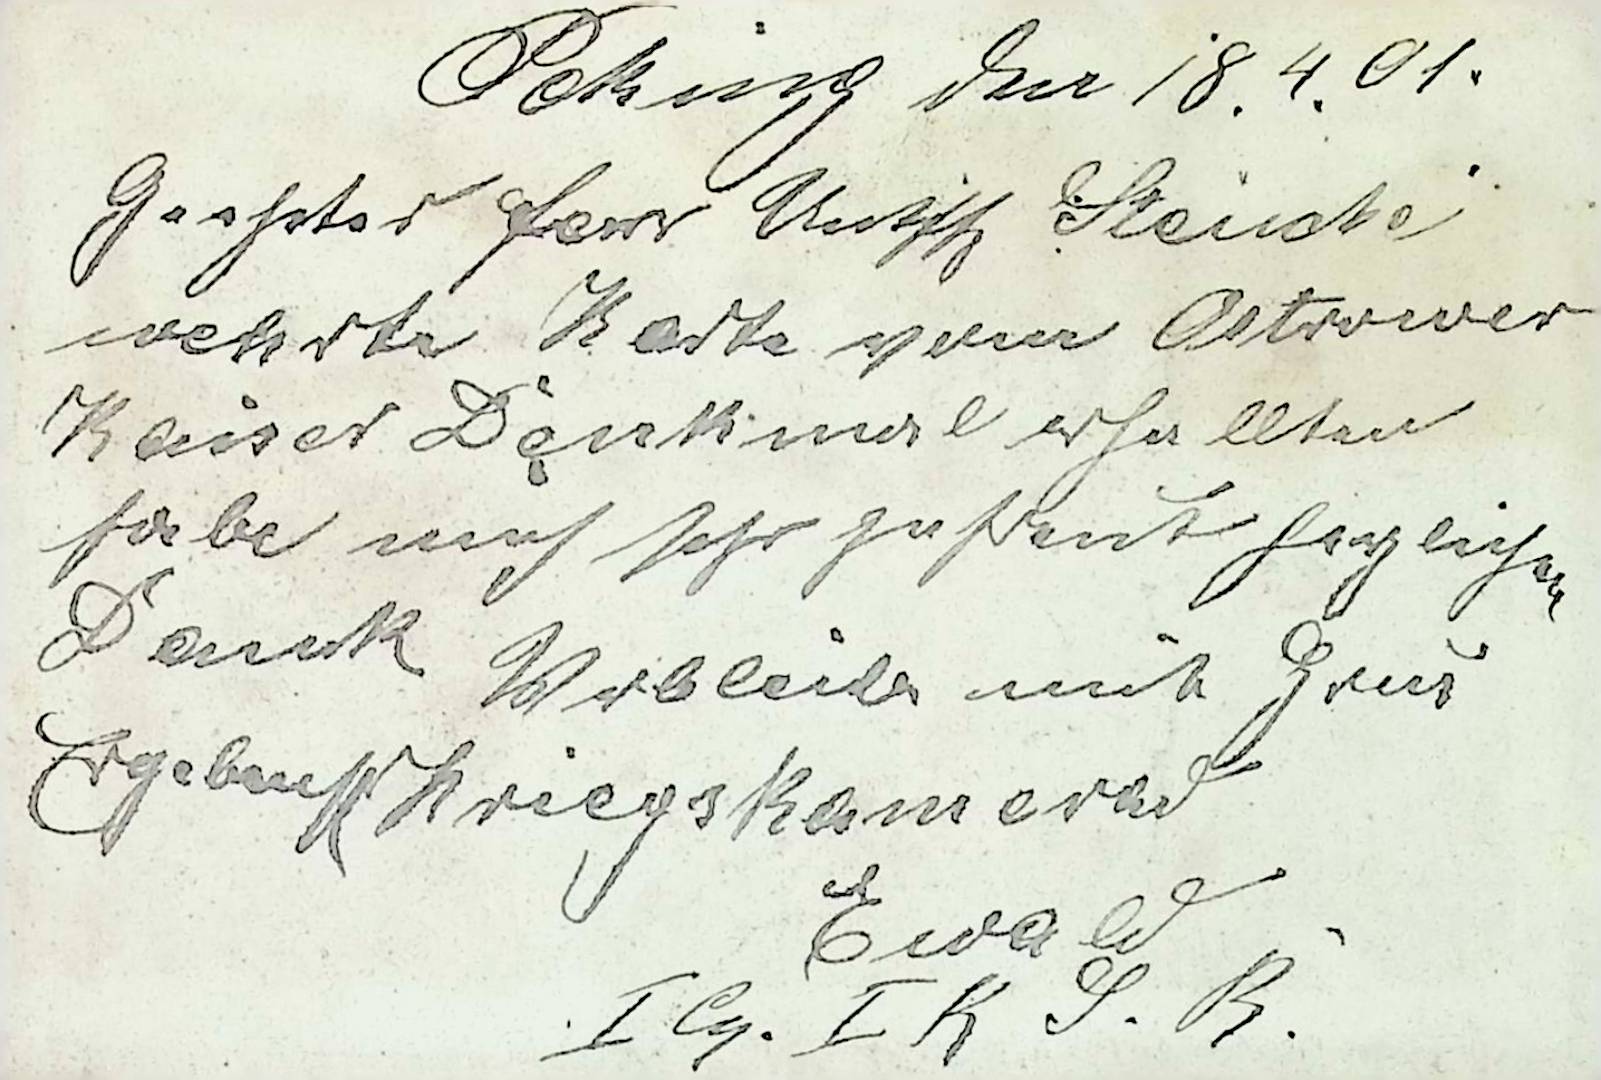 Peking den 18.4.01.
Geehrter Herr Steucke
wehrte Karte vom Ostrower
Kaiser Denkmal erhallten
habe mich sehr gefreut herzlichen
Dank Verbleibe mit Grus
Ergebenst Kriegskamerad
Ewald
I Cp. I K S. R.